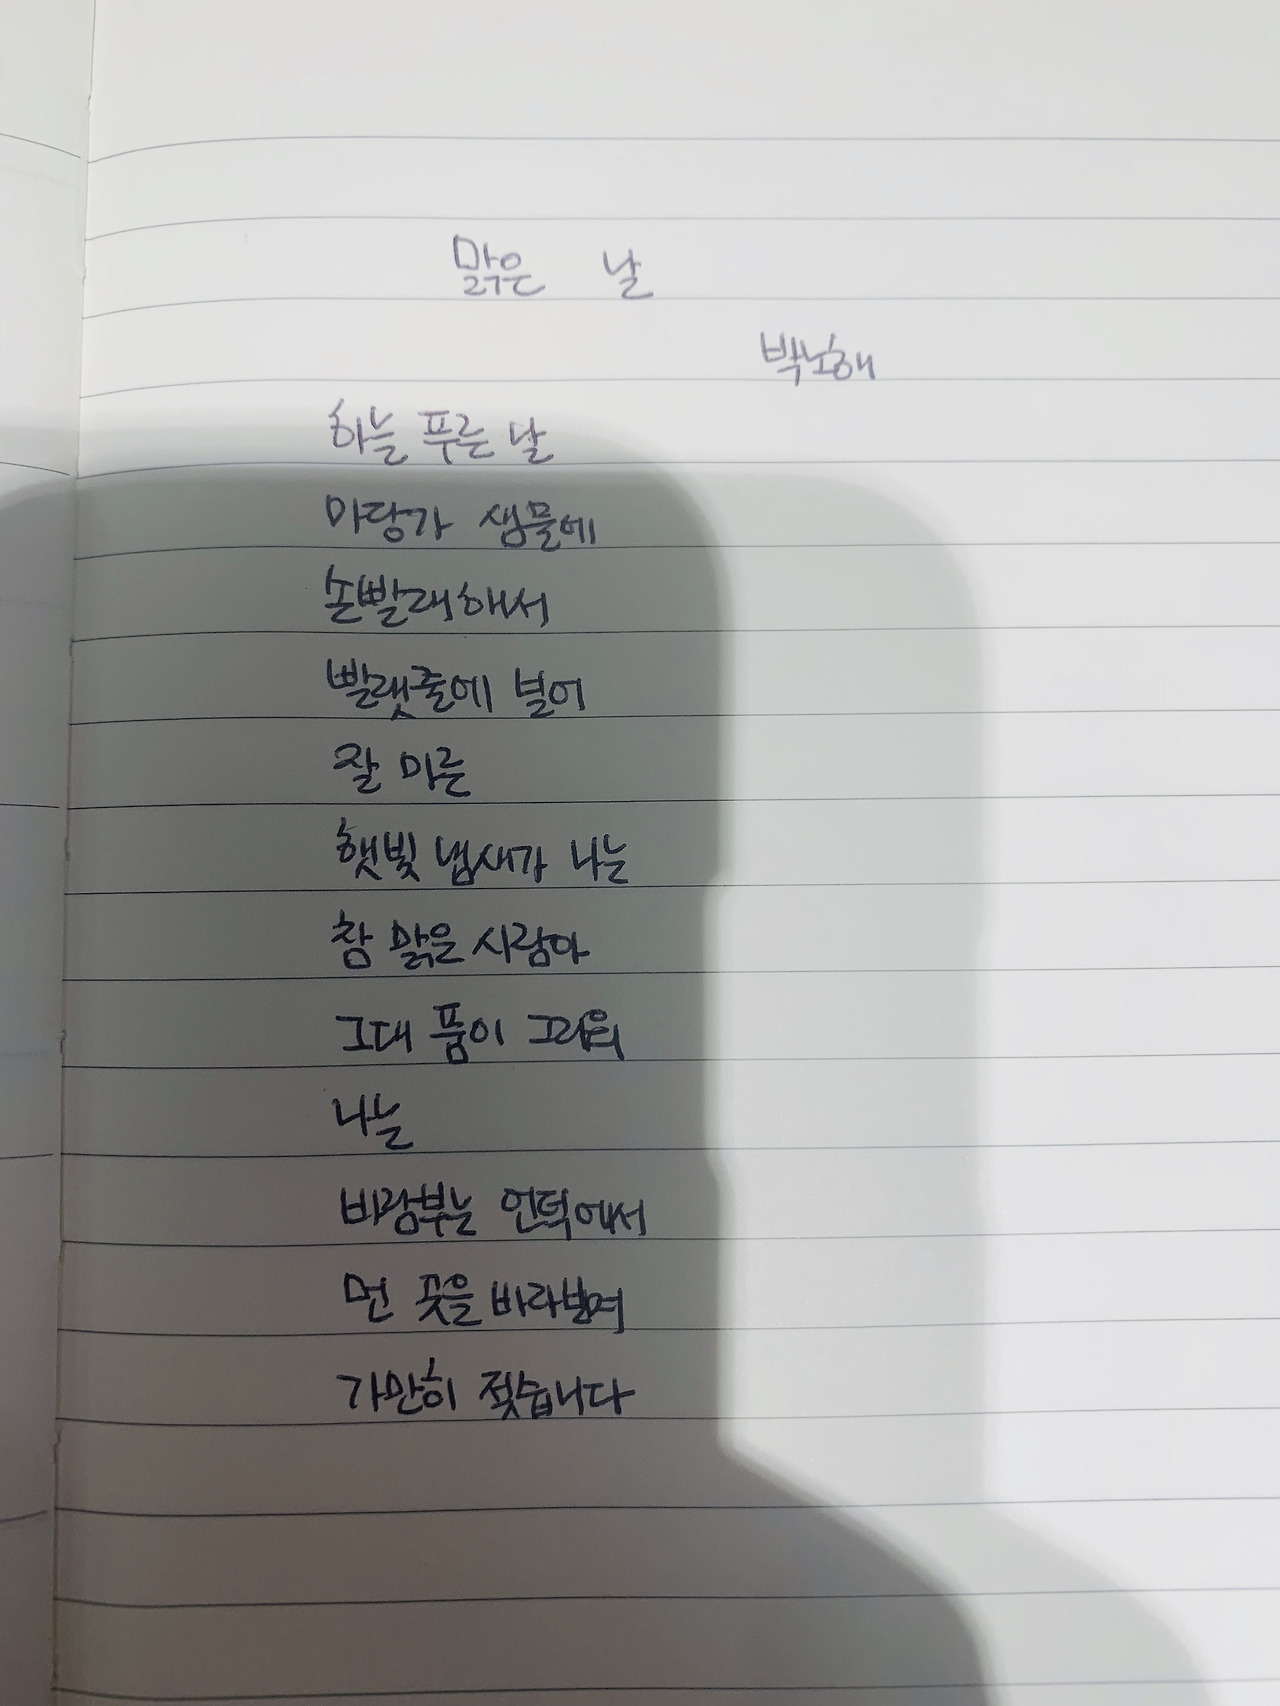 맑은 날
박노해
하늘 푸른 날
마당가 샘물에
손빨래해서
빨랫줄에 널어
잘 마른
햇빛 냄새가 나는
참 맑은 사람아
그대 품이 그리워
나는
바람부는 언덕에서
먼 곳을 바라보며
가만히 젖습니다